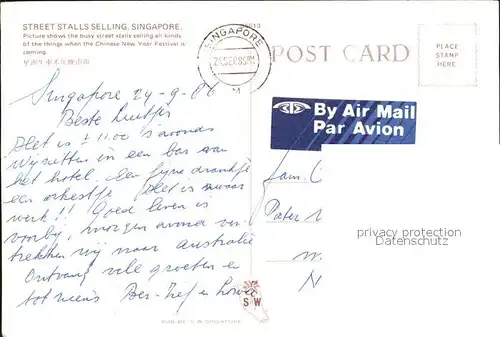 STREET STALLS SELLING, SINGAPORE.
Picture shows the busy street stalls selling all kinds
of the things when the Chinese New Year Festival is
coming.
SINGAPORE
M
POST CARD
PLACE
STAMP
HERE
By Air Mail
Par Avion
Singapore 24-9-86
Beste
Het is ± 11.00 's avonds
Wij zitten in een bar van
het hotel. Een fijne drankje
een orkestje Het is zwaar
werk!! Goed leven is
voorby, morgen avond ver
trekken wij naar Australie
Ontvang vele groeten en
tot ziens Ber-Jef en
Fam. C
Pater
N
privacy protection
Datenschutz
S W